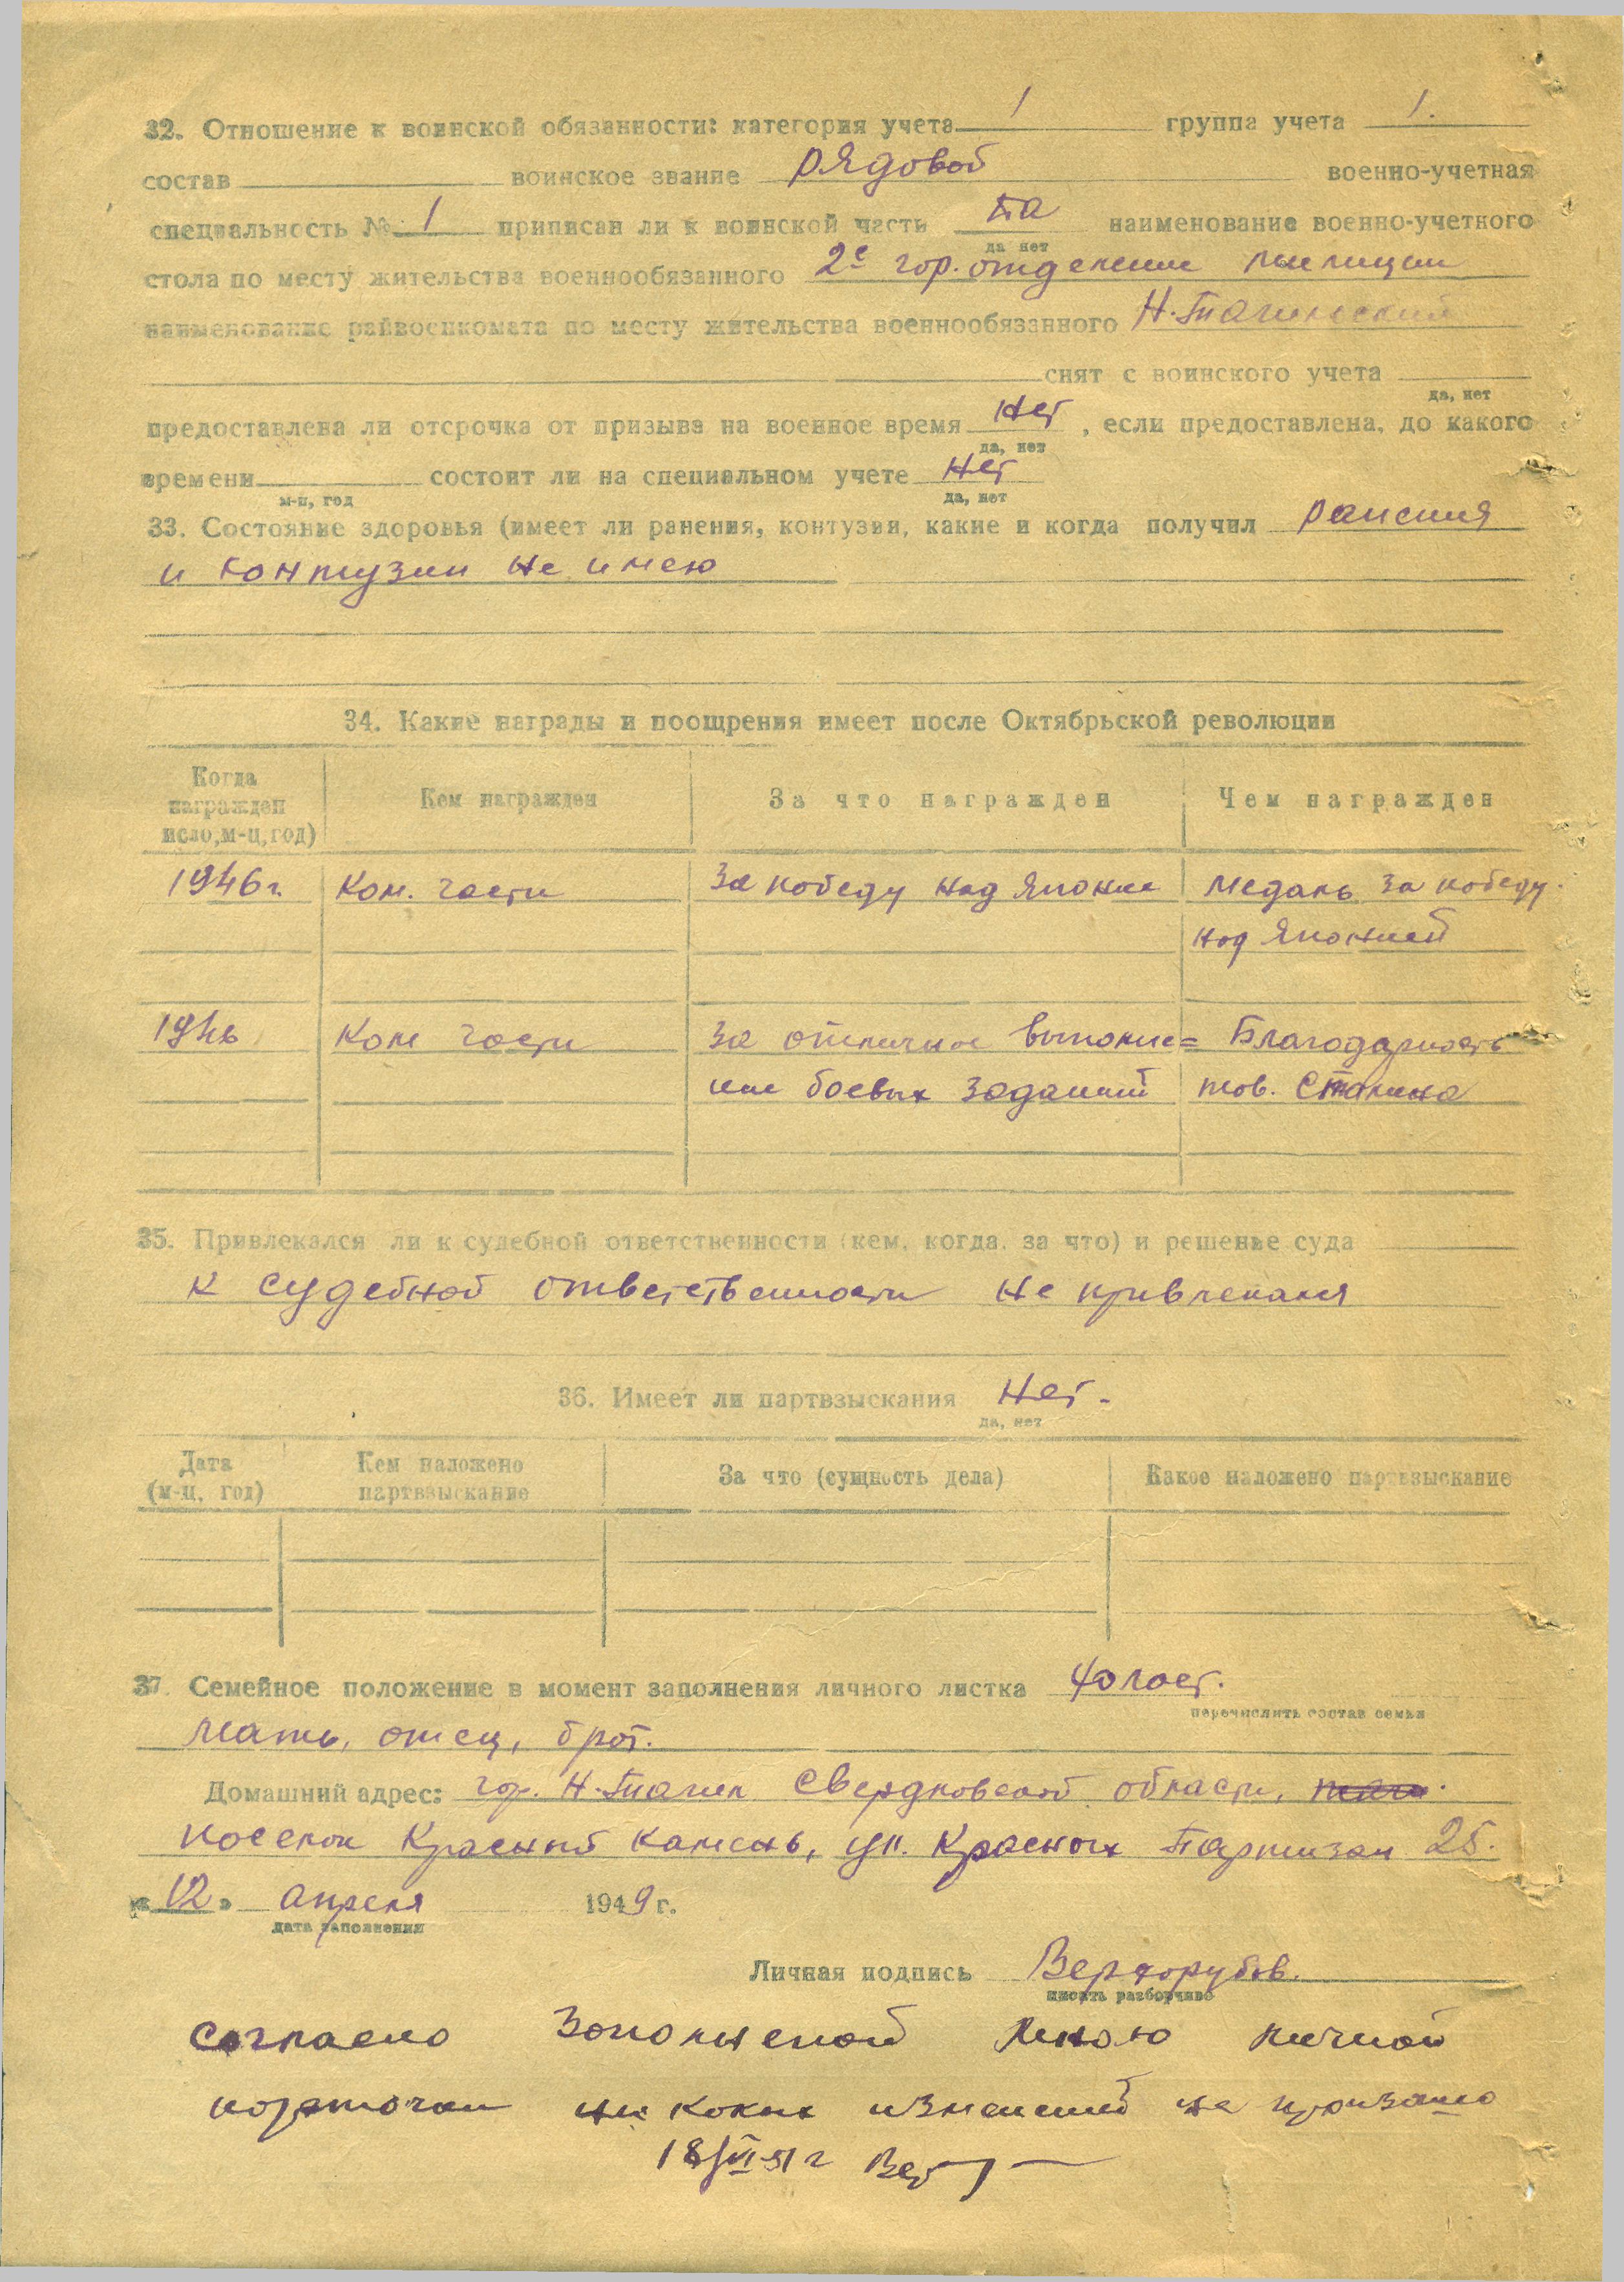 32. Отношение к воинской обязанности: категория учета 1 группа учета 1.
состав воинское звание рядовой военно-учетная
специальность № 1 приписан ли к воинской часть да наименование военно-учетного
да нет
стола по месту жительства военнообязанного 2е гор. отделение милиции
наименование райвоенкомата по месту жительства военнообязанного Н.Тагильский
снят с воинского учета
да, нет
предоставлена ли отсрочка от призыва на военное время Нет, если предоставлена, до какого
да, нет
времени состоит ли на специальном учете Нет
м-ц, год да, нет
33. Состояние здоровья (имеет ли ранения, контузии, какие и когда получил ранения
и контузии не имею
34. Какие награды и поощрения имеет после Октябрьской революции
Когда награжден исло, м-ц, год) Кем награжден За что награжден Чем награжден
1946 г. Ком. части За победу над Японие Медаль за победу
над Японией
1946 Ком части За отличное выполне= Благодарность
ние боевых заданий тов. Сталина
35. Привлекался ли к судебной ответственности (кем, когда, за что) и решенье суда
к судебной ответственности не привлекался
36. Имеет ли партвзыскания Нет.
да, нет
Дата (м-ц, год) Кем наложено партвзыскание За что (сущность дела) Какое наложено партвзыскание
37. Семейное положение в момент заполнения личного листка Холост.
перечислить состав семьи
Мать, отец, брат.
Домашний адрес: гор. Н.Тагил Свердловской области,
поселок Красный камень, ул. Красных Партизан 25.
« 12 » апреля 1949 г.
дата заполнения
Личная подпись Верхорубов.
писать разборчиво
Согласно Заполненой Мною личной
карточки ни каких изменений не произошло
18/VI-51 г Вер